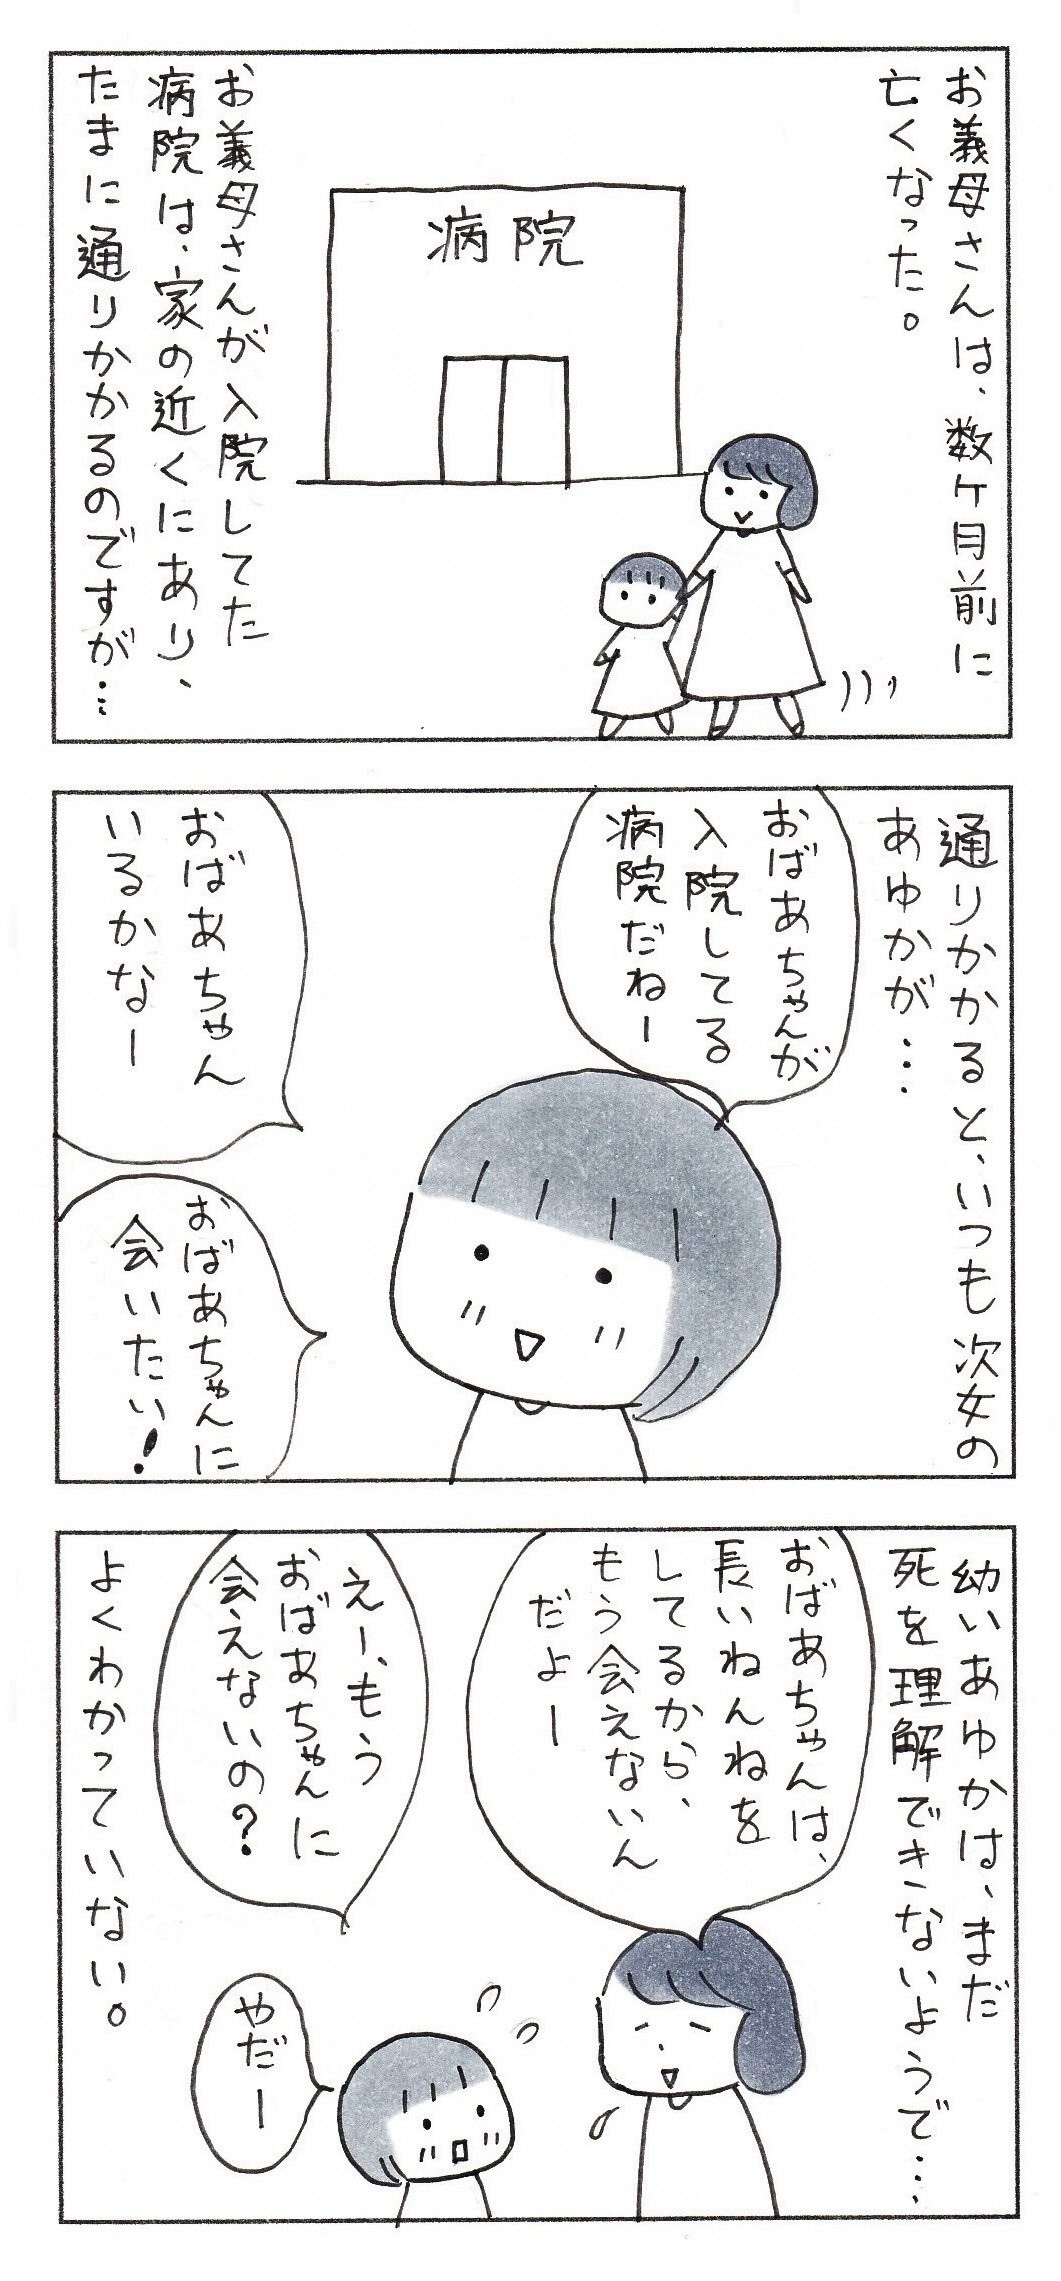 お義母さんは、数ヶ月前に
亡くなった。
病院
お義母さんが入院してた
病院は、家の近くにあり、
たまに通りかかるのですが…
通りかかると、いつも次女の
あゆかが…
おばあちゃんが
入院してる
病院だねー
おばあちゃん
いるかなー
おばあちゃんに
会いたい!
幼いあゆかは、まだ
死を理解できないようで…
おばあちゃんは、
長いねんねを
してるから、
もう会えないん
だよー
えー、もう
おばあちゃんに
会えないの?
やだー
よくわかっていない。